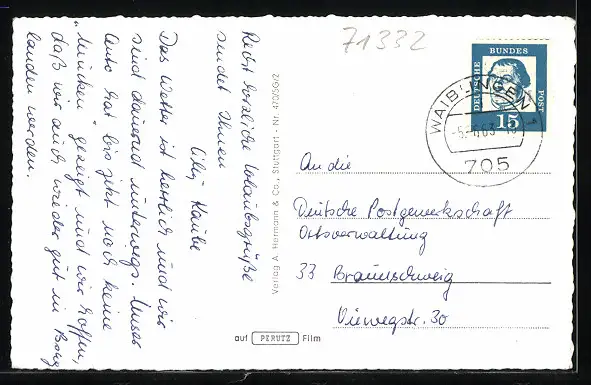 Recht herzliche Urlaubsgrüße
sendet Ihnen
Das Wetter ist herrlich und wir
sind dauernd unterwegs. Unser
Auto hat bis jetzt noch keine
„Mucken" gezeigt und wir hoffen,
daß wir auch wieder gut in Bswg
landen werden.
Verlag A. Herrmann & Co., Stuttgart - Nr.
71332
DEUTSCHE
BUNDES
POST
15
WAIBLINGEN 1
705
An die
Deutsche Postgewerkschaft
Ortsverwaltung
33 Braunschweig
Viewegstr. 30
auf PERUTZ Film